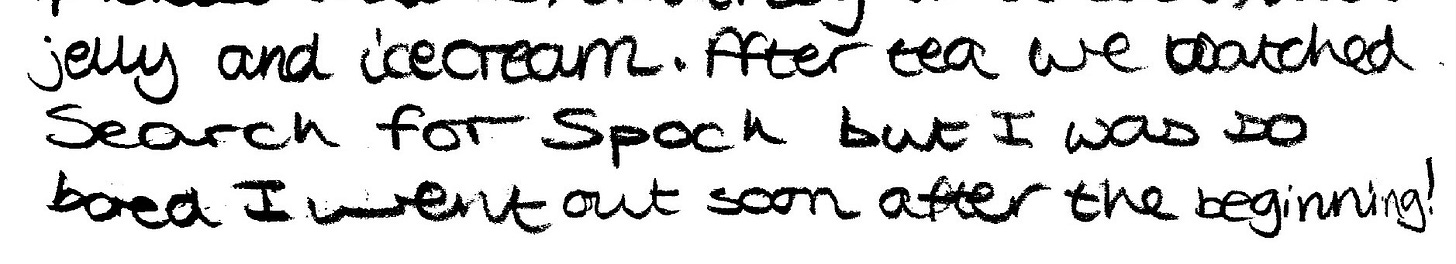 jelly and icecream. After tea we watched
Search for Spock but I was so
bored I went out soon after the beginning!